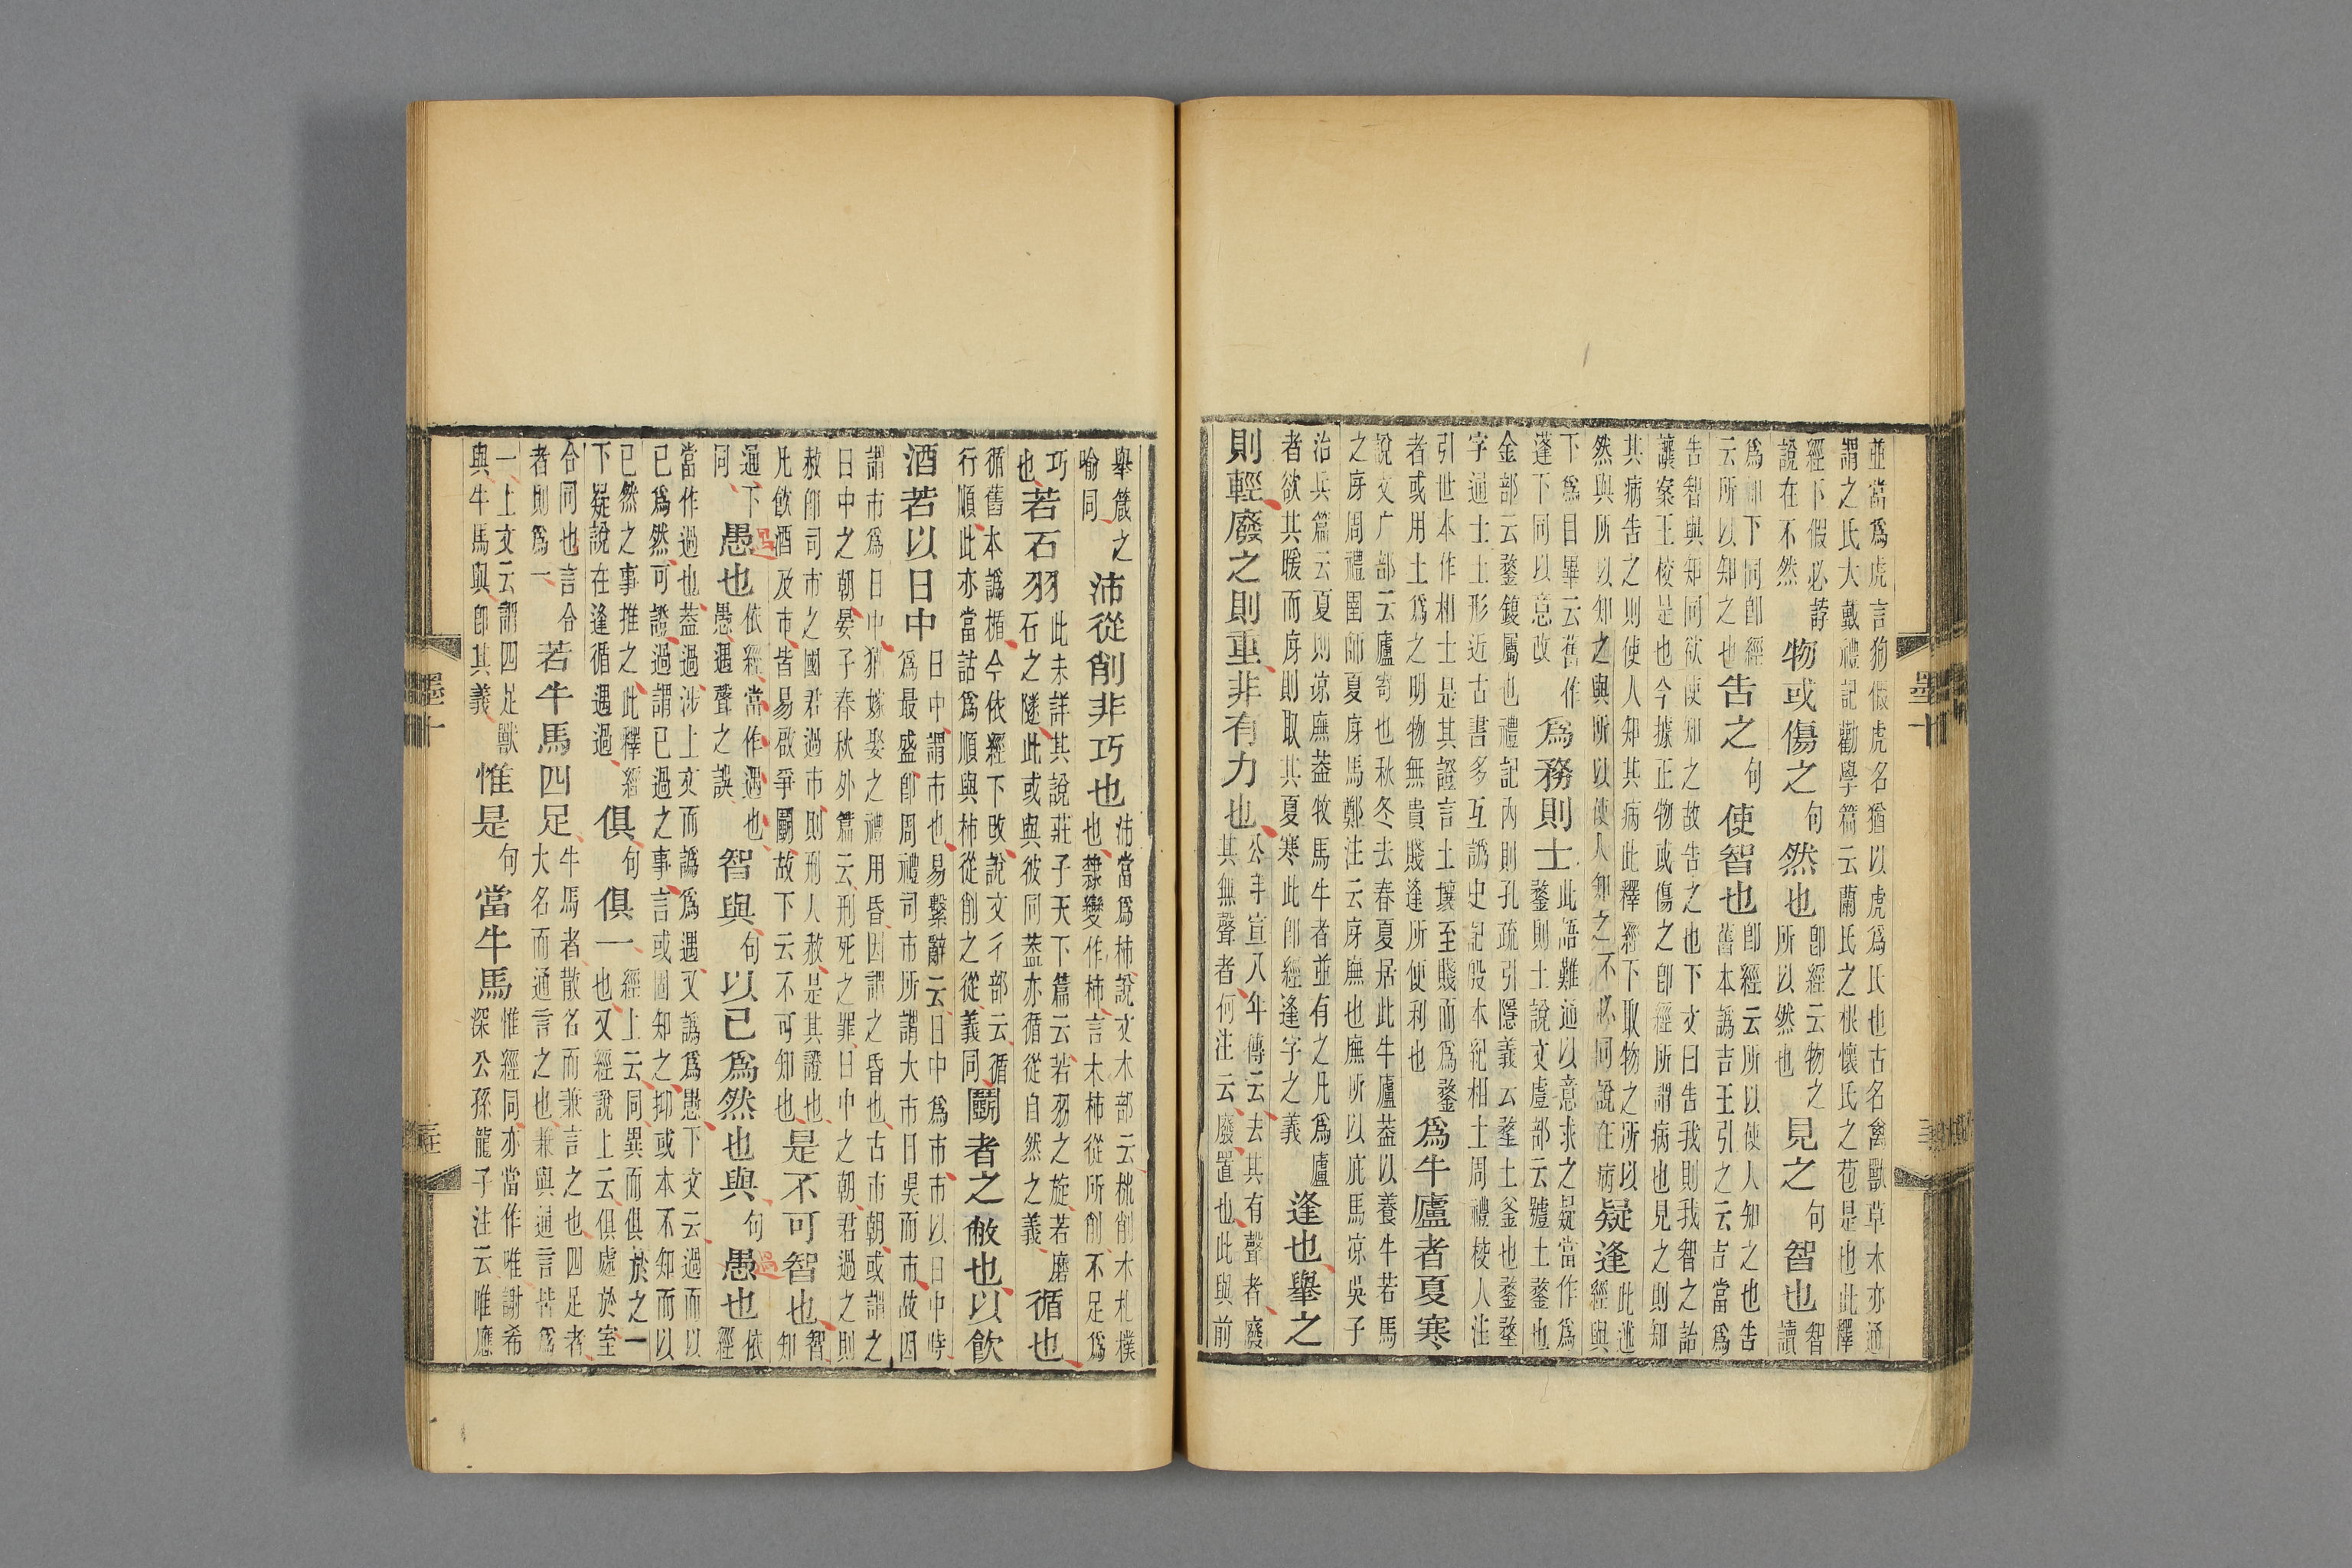 並當爲虎言狗假虎名猶以虎爲氏也古名禽獸草木亦通
謂之氏大戴禮記勸學篇云蘭氏之根懷氏之苞是也此釋
經下假必誖
說在不然
物或傷之句然也卽經云物之
所以然也
見之句智也智
讀
爲卽下同卽經
云所以知之也
告之句使智也卽經云所以使人知之也告
舊本譌吉王引之云吉當爲
告智與知同欲使知之故告之也下文曰告我則我智之詒
讓案王校是也今據正物或傷之卽經所謂病也見之則知
其病告之則使人知其病此釋經下取物之所以
然與所以知之與所以使人知之不必同說在病
疑逢此述
經與
下爲目畢云舊作
蓬下同以意改
爲務則士此語難通以意求之疑當作爲
鍪則土說文虘部云䖒土鍪也
金部云鍪鍑屬也禮記內則孔疏引隱義云堥土釜也鍪堥
字通士土形近古書多互譌史記殷本紀相土周禮校人注
引世本作相士是其證言土壤至賤而爲鍪
者或用土爲之明物無貴賤逢所便利也
爲牛廬者夏寒
說文广部云廬寄也秋冬去春夏居此牛廬葢以養牛若馬
之庌周禮圉師夏庌馬鄭注云庌廡也廡所以庇馬凉吳子
治兵篇云夏則凉廡葢牧馬牛者並有之凡爲廬
者欲其暖而庌則取其夏寒此卽經逢字之義
逢也舉之
則輕廢之則重非有力也公羊宣八年傳云去其有聲者廢
其無聲者何注云廢置也此與前
舉箴之
喻同
沛從削非巧也沛當爲柹說文木部云柹削木札樸
也隸變作柿言木柿從所削不足爲
巧
也
若石羽此未詳其說莊子天下篇云若羽之旋若磨
石之隧此或與彼同葢亦循從自然之義
循也
循舊本譌楯今依經下改說文彳部云循
行順此亦當詁爲順與柿從削之從義同
鬭者之敝也以飮
酒若以日中日中謂市也易繫辭云日中爲市市以日中時
爲最盛卽周禮司市所謂大市日昃而市故因
謂市爲日中猶嫁娶之禮用昏因謂之昏也古市朝或謂之
日中之朝晏子春秋外篇云刑死之罪日中之朝君過之則
赦卽司市之國君過市則刑人赦是其證也
凡飮酒及市皆易啟爭鬭故下云不可知也
是不可智也智
知
通下
同
愚也依經當作遇也
愚遇聲之誤
智與句以已爲然也與句愚也依
經
當作過也葢過涉上文而譌爲遇又譌爲愚下文云過而以
已爲然可證過謂已過之事言或固知之抑或本不知而以
已然之事推之此釋經
下疑說在逢循遇過
俱句俱一經上云同異而俱於之一
也又經說上云俱處於室
合同也言合
者則爲一
若牛馬四足牛馬者散名而兼言之也四足者
大名而通言之也兼與通言皆爲
一上文云謂四足獸
與牛馬與卽其義
惟是句當牛馬惟經同亦當作唯謝希
深公孫龍子注云唯應
墨十
墨十